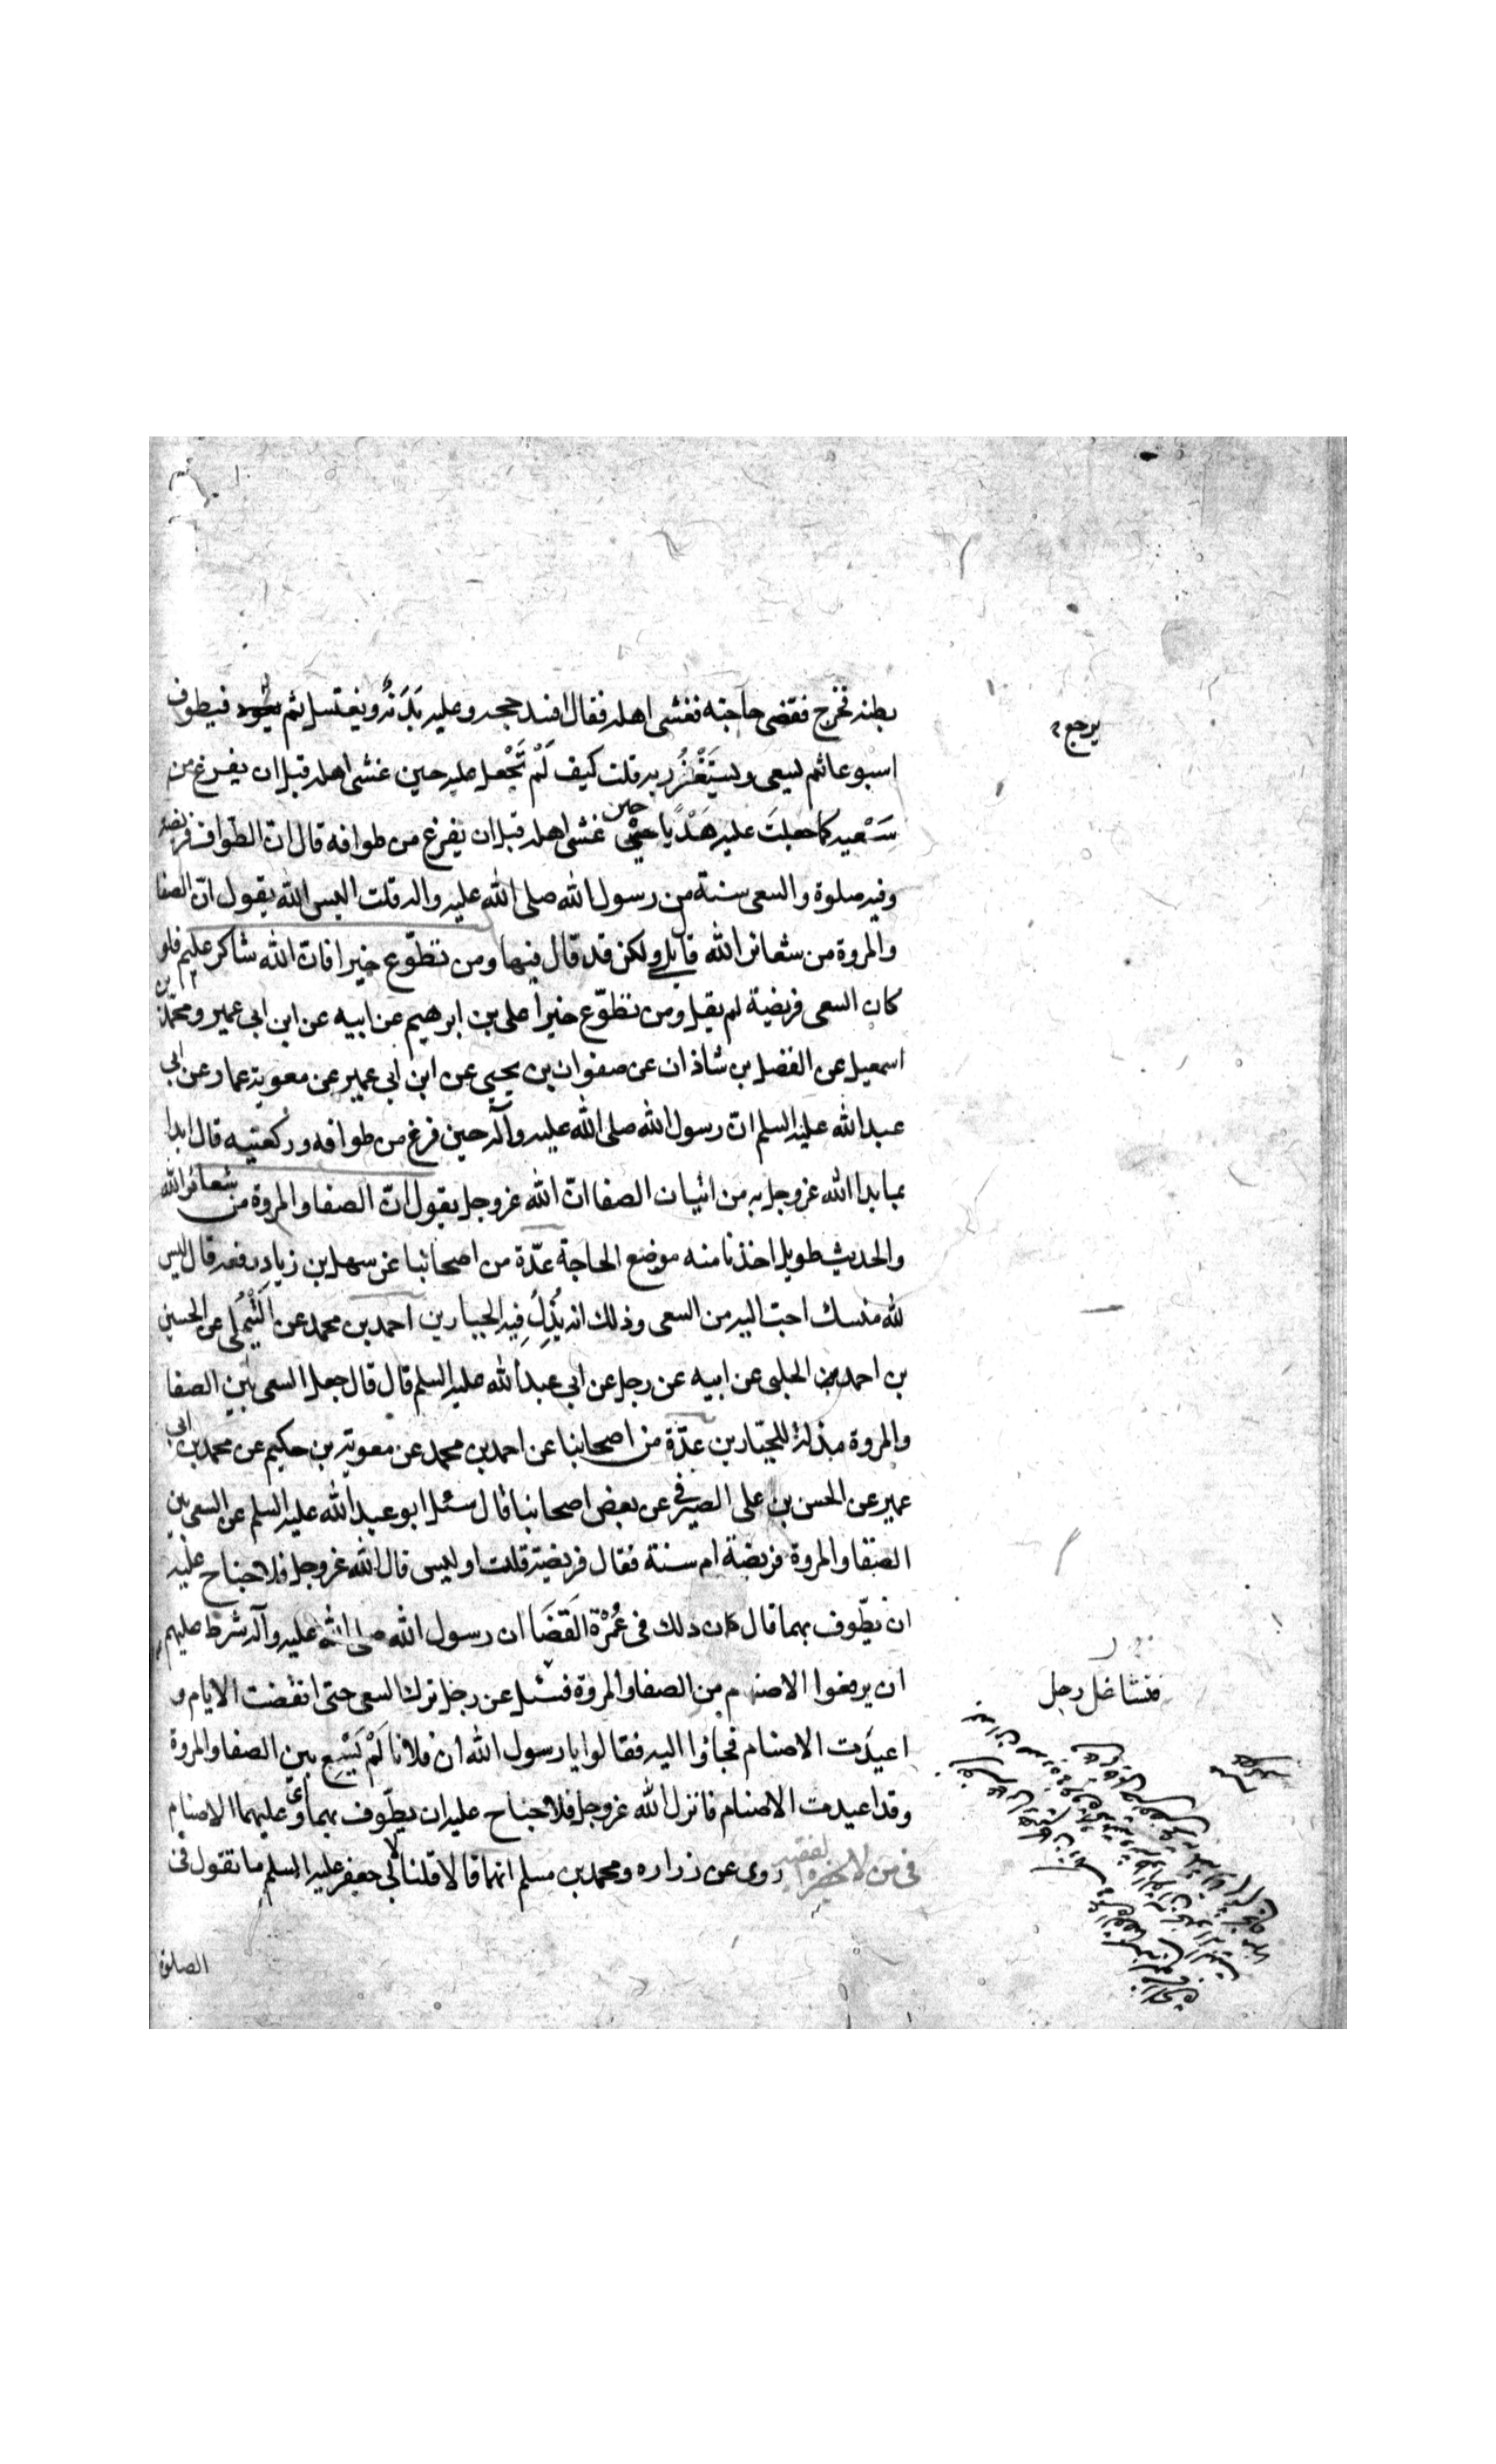 بطنه فخرج فقضى حاجته فغشى اهله فقال افسد حجه وعليه بَدَنَةٌ ويغتسل ثم يعود فيطوف
يرجع
اسبوعا ثم يسعى ويستَغْفِرُ ربه قلت كيف لَمْ تَجْعل عليه حين غشى اهله قبل ان يفرغ من
سَعْيه كما جعلتَ عليه هَدْيًا حين غشى اهله قبل ان يفرغ من طوافه قال ان الطواف فريضة
وفيه صلوة والسعى سنة من رسول الله صلى الله عليه واله قلت اليس الله يقول انّ الصفا
والمروة من شعائر الله قال بلى ولكن قد قال فيها ومن تطوّع خيرا فان الله شاكر عليم فلو
كان السعى فريضة لم يقل ومن تطوّع خيرا على بن ابرهيم عن ابيه عن ابن ابى عمير ومحمّد بن
اسمعيل عن الفضل بن شاذان عن صفوان بن يحيى عن ابن ابى عمير عن معوية عمار عن ابى
عبد الله عليه السلم ان رسول الله صلى الله عليه وآله حين فرغ من طوافه وركعتيه قال ابدا
بما بدا الله عز وجل به من اتيان الصفا ان الله عز وجل يقول انّ الصفا والمروة من شعائر الله
والحديث طويل اخذنا منه موضع الحاجة عدّة من اصحابنا عن سهل بن زياد رفعه قال ليس
لله منسك احب اليه من السعى وذلك انه يُذِلُّ فيه الجبارين احمد بن محمد عن التَّيْمُلى عن الحسين
بن احمد الحلبى عن ابيه عن رجل عن ابى عبد الله عليه السلم قال قال جعل السعى بين الصفا
والمروة مذلة للجبّارين عدّة من اصحابنا عن احمد بن محمد عن معوية بن حكيم عن محمد بن ابى
عمير عن الحسن بن على الصيرفى عن بعض اصحابنا قال سئل ابو عبد الله عليه السلم عن السعى بين
الصفا والمروة فريضة ام سنة فقال فريضة قلت اوليس قال الله عز وجل فلا جناح عليه
ان يطّوف بهما قال كان ذلك فى عُمْرَة القَضَا ان رسول الله صلى الله عليه وآله شرط عليهم
ان يرفعوا الاصنام من الصفا والمروة فسئل عن رجل ترك السعى حتى انقضت الايام و
فتشاغل رجل
اعيدَت الاصنام فجاؤا اليه فقالوا يا رسول الله ان فلانا لَمْ يَسْعِ بين الصفا والمروة
وقد اعيدت الاصنام فانزل الله عز وجل فلا جناح عليه ان يطّوف بهما وعليهما الاصنام
فى من لا يحضره الفقيه روى عن زراره ومحمد بن مسلم انهما قالا قلنا لابى جعفر عليه السلم ما تقول فى
الصلوة